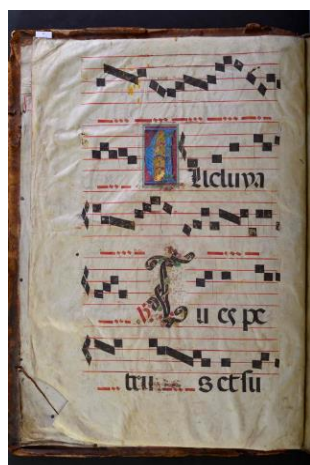 Alleluya
℣ Tu es pe
tru s et su